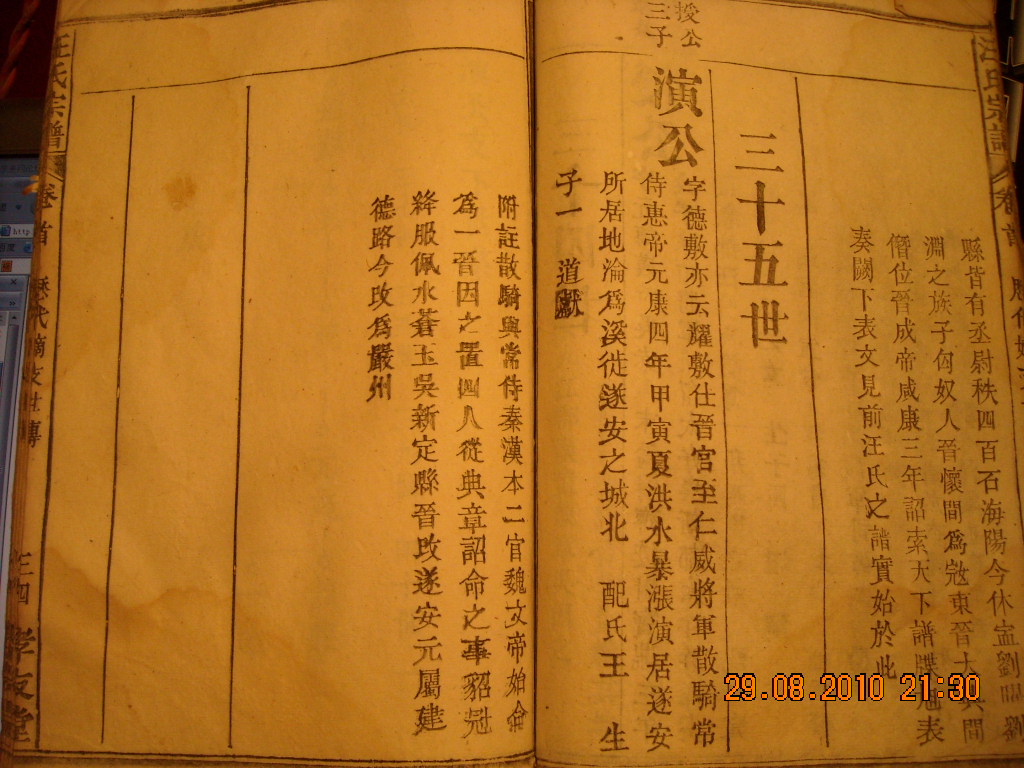 縣皆有丞尉秩四百石海陽今休寍劉聰劉
淵之族子匈奴人晉懷間為寇東晉大興間
僭位晉成帝咸康三年詔索天下譜牒旭表
奏闕下表文見前汪氏之譜實始於此
三十五世
授公
三子
演公
字德敷亦云耀敷仕晉官至仁威將軍散騎常
侍惠帝元康四年甲寅夏洪水暴漲演居遂安
所居地淪為溪徙遂安之城北 配氏王 生
子一 道獻
附註散騎與常侍秦漢本二官魏文帝始合
為一晉因之置四人從典章詔命之事貂冠
絳服佩水蒼玉吳新定縣晉改遂安元屬建
德路今改為嚴州
汪氏宗譜 卷首 歷代 世傳 三四 孝友堂
汪氏宗譜 卷首 歷代
29.08.2010 21:30